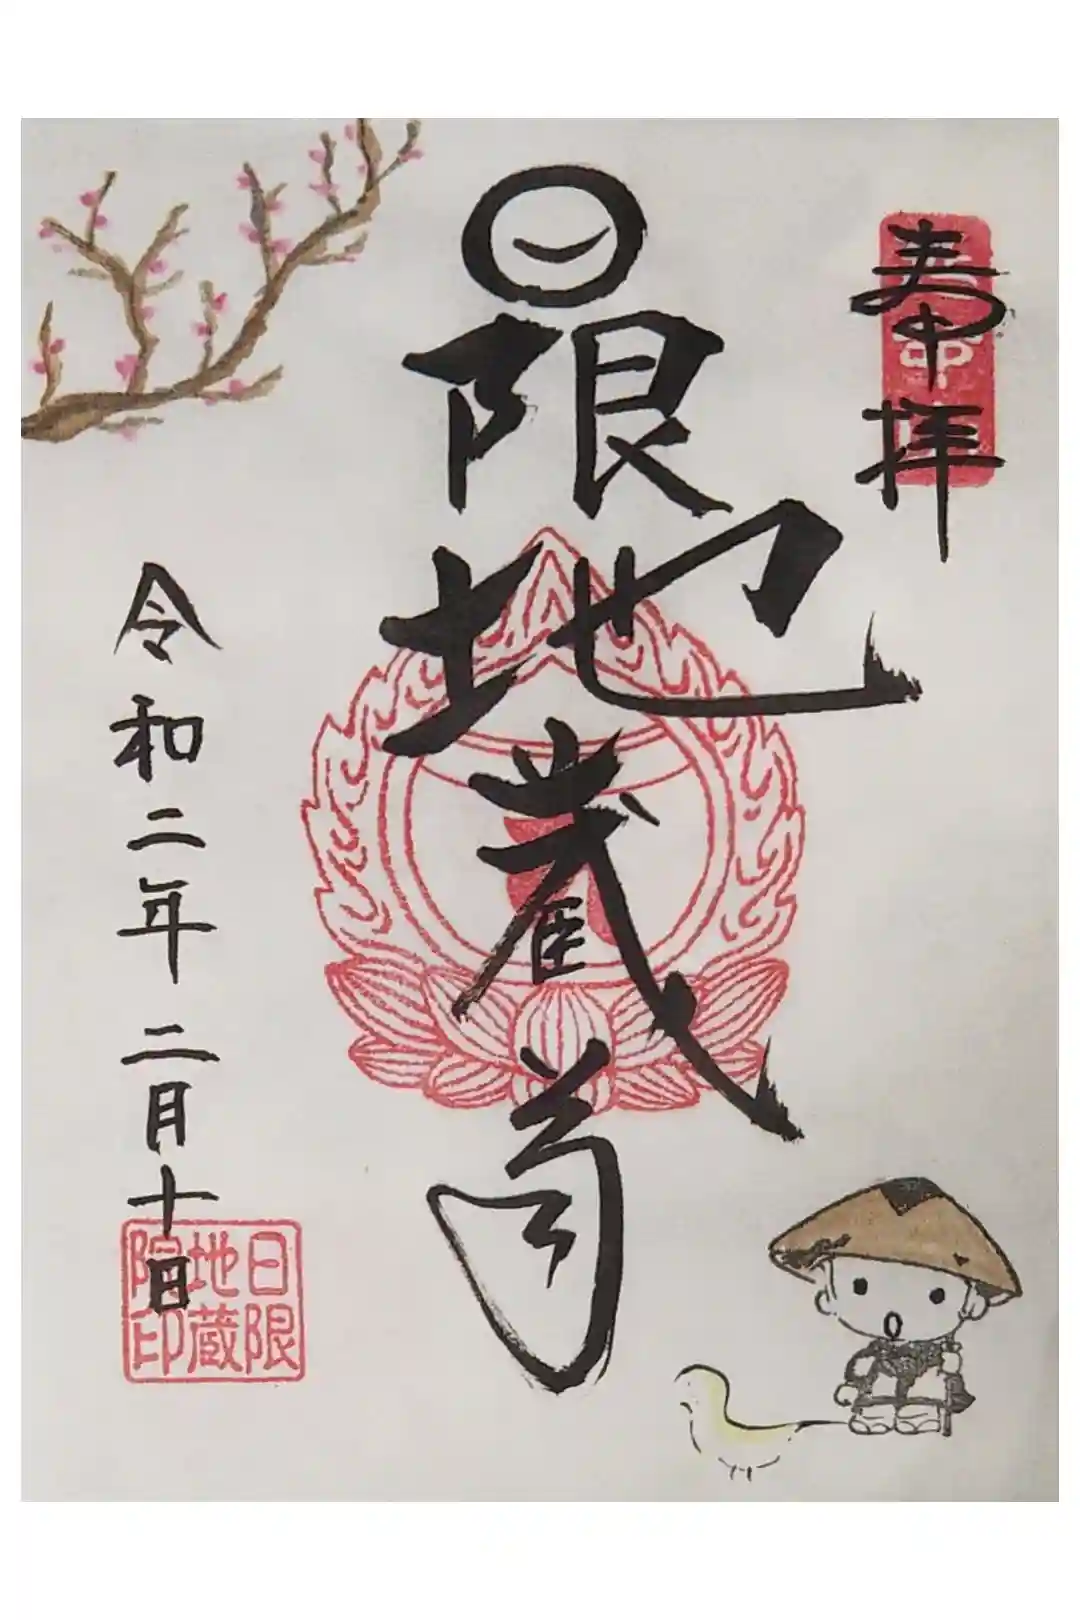 奉拝
日限地蔵尊
令和二年二月十日
日限
地蔵
院印